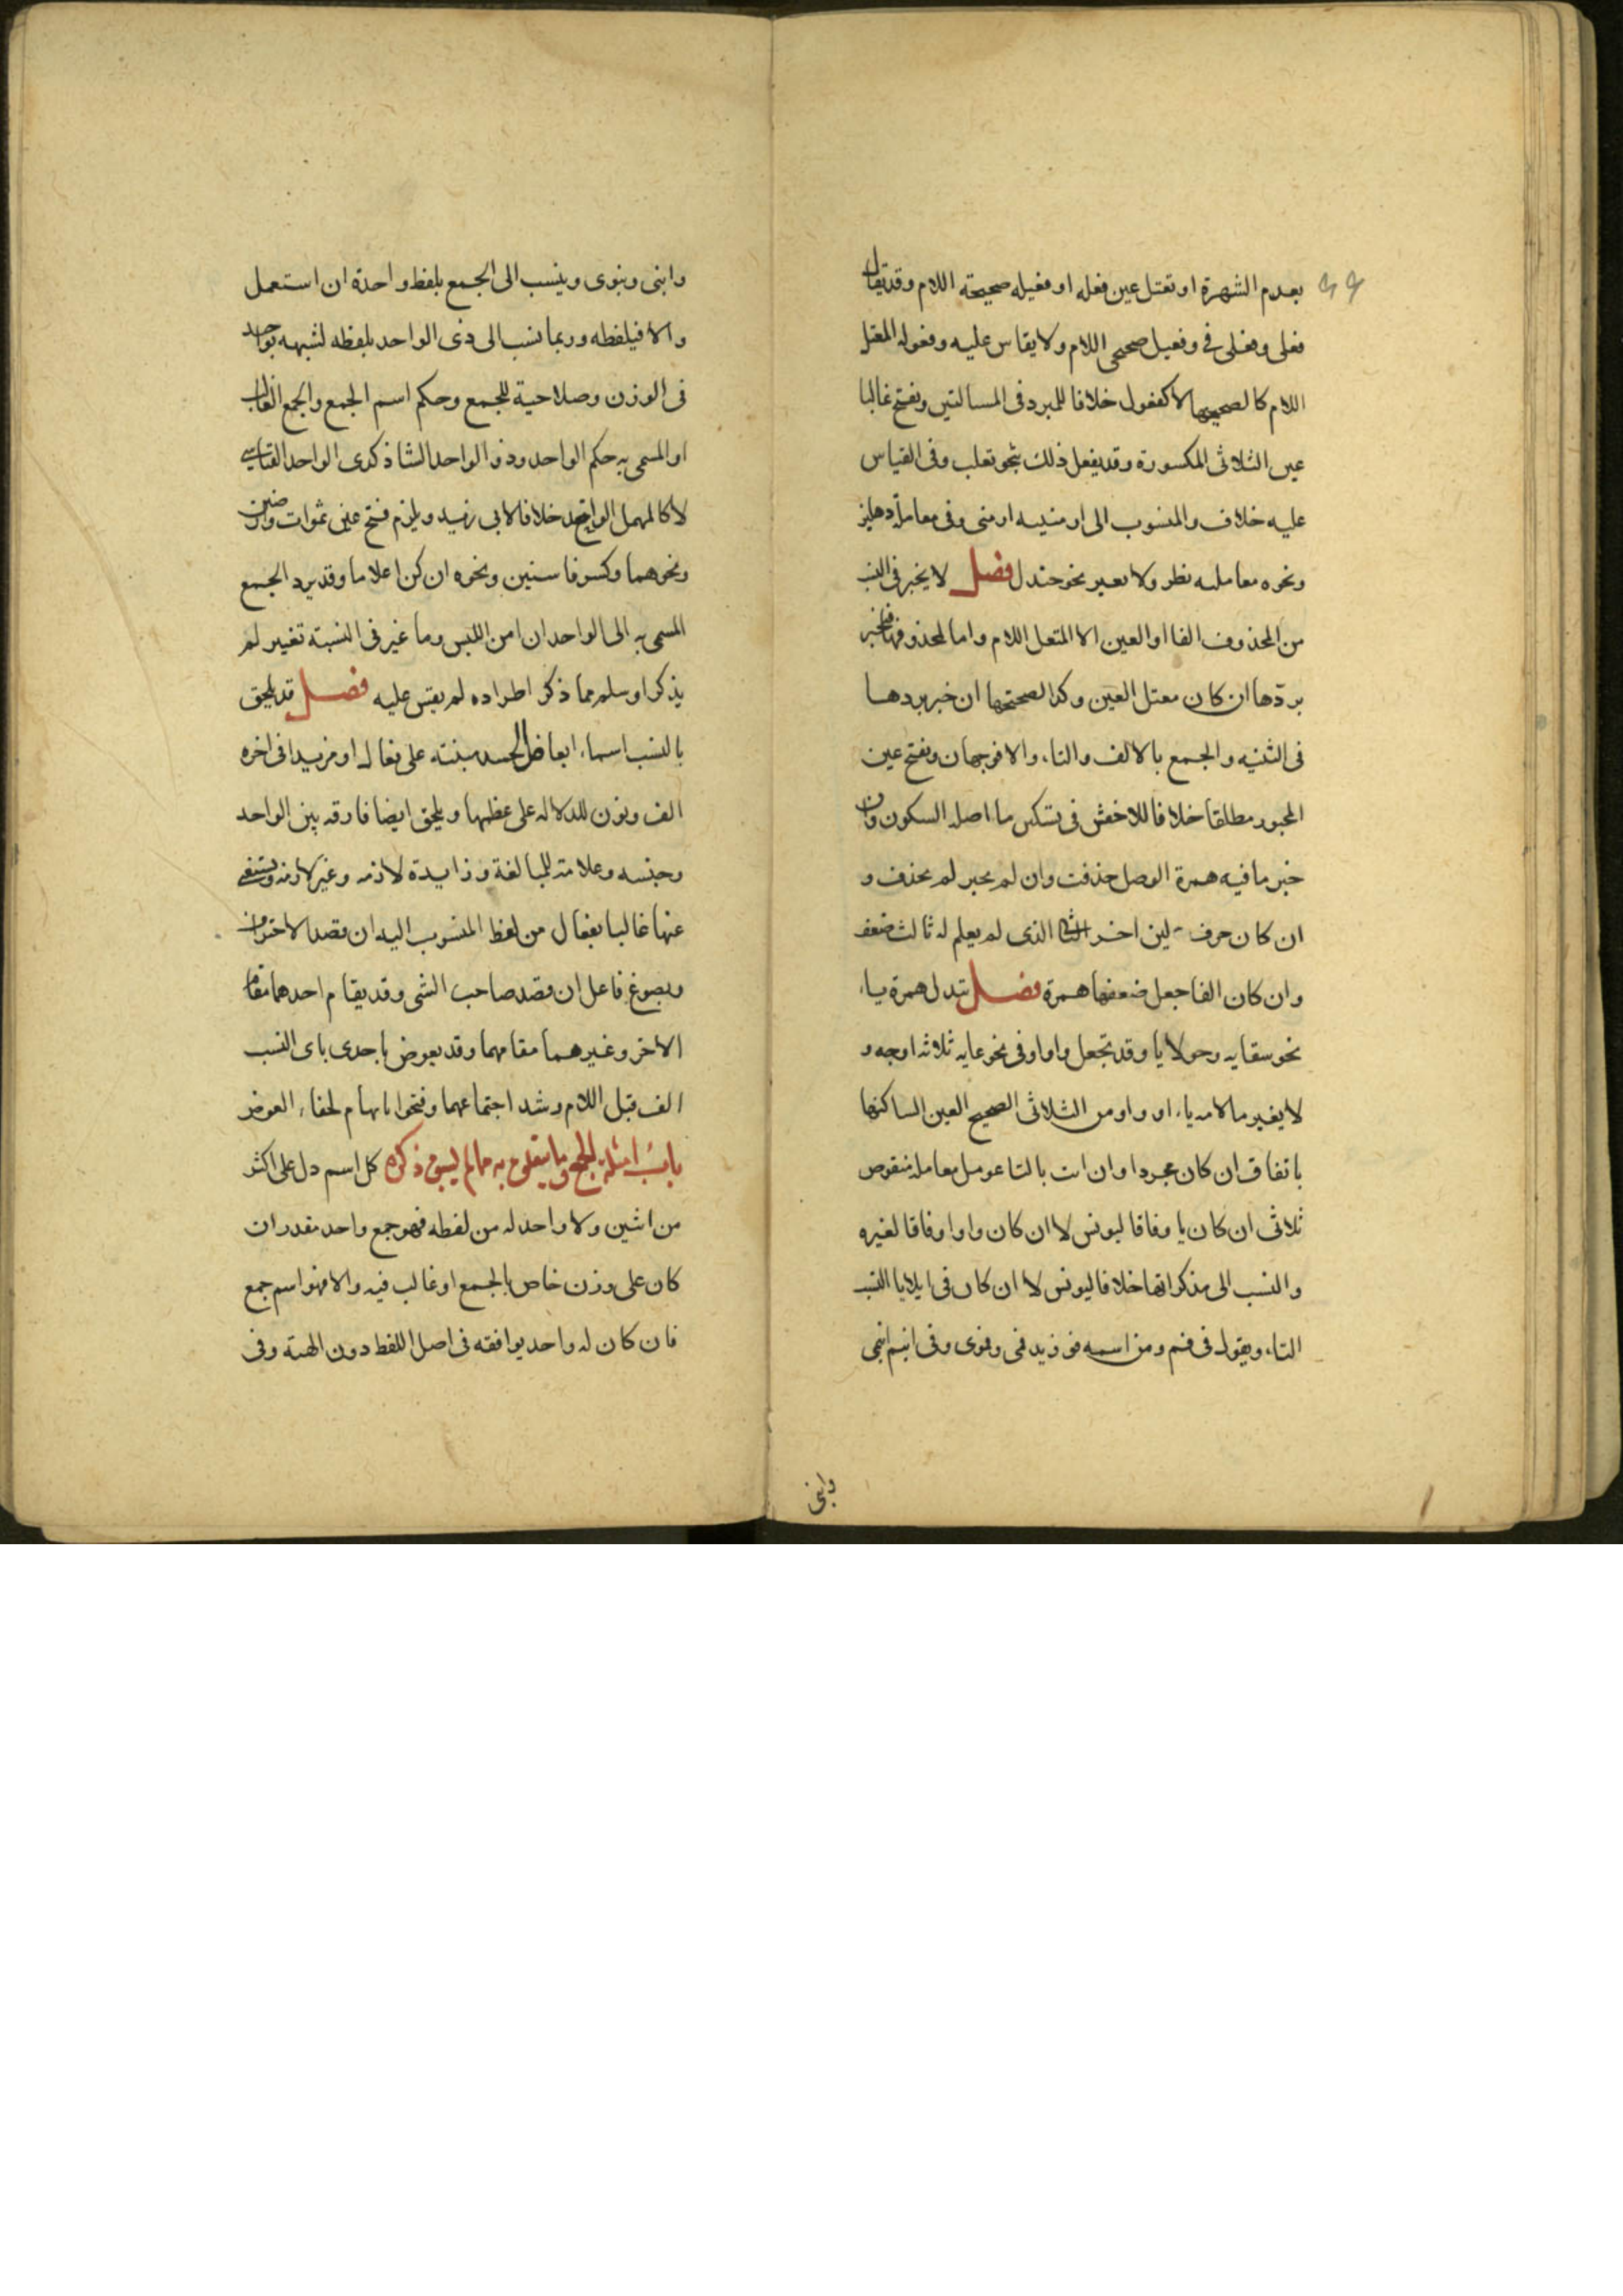 ٩٩
بعدم الشهرة او تعتل عين فعله او فعيله صحيحة اللام وقد يقال
فعلى وفعلى في وفعيل صحيحى اللام ولا يقاس عليه وفعوله المعتل
اللام كالصحيحها لا كفعول خلافا للمبرد فى المسالتين وتفتح غالبا
عين الثلاثى المكسورة وقد يفعل ذلك بنحو تغلب وفى القياس
عليه خلاف والمنسوب الى ارمنيه ارمنى وفى معاملة دهليز
ونحوه معامله نظر ولا يعير نحو جندل فصل لا يجبر فى النسب
من المحذوف الفا او العين الا المتعل اللام واما المحذوفها فيجبر
بردها ان كان معتل العين وكذا الصحيحها ان جبر بردها
فى التثنيه والجمع بالالف والتاء والا فوجهان وتفتح عين
المجبور مطلقا خلافا للاخفش فى تسكين ما اصله السكون وان
جبر ما فيه همزة الوصل حذفت وان لم يجبر لم يحذف و
ان كان حرف لين اخر الثنا الذى لم يعلم له ثالث ضعف
وان كان الفا جعل ضعفها همزة فصل تبدل همزة ياء
نحو سقايه وحولايا وقد تجعل واوا وفى نحو غايه ثلاثه اوجه و
لا يغير ما لامه ياء او واو من الثلاثى الصحيح العين الساكنها
باتفاق ان كان مجردا وان انث بالتا عومل معاملة منقوص
ثلاثى ان كان يا وفاقا ليونس لا ان كان واوا وفاقا لغيره
والنسب الى مذكراتها خلافا ليونس لا ان كان فى ايلايا النسب
التاء ويقول فى فم ومن اسمه فو زيد فمى وفوى وفى ابنم ابنمى
وابنى
وابنى وبنوى وينسب الى الجمع بلفظ واحدة ان استعمل
والا فبلفظه وربما نسب الى ذى الواحد بلفظه لشبهه بواحد
فى الوزن وصلاحية للجمع وحكم اسم الجمع والجمع الغالب
او المسمى به حكم الواحد وذو الواحد الشاذ كذى الواحد القياسى
لا كالمهمل الواحد خلافا لابى زيد ويلزم فتح عين تمرات وارضين
ونحوهما وكسر فا سنين ونحوه ان كن اعلاما وقد يرد الجمع
المسمى به الى الواحد ان امن اللبس وما غير فى النسبة تغيير لم
يذكر او سلم مما ذكر اطراده لم يقس عليه فصل قد يلحق
بالنسب اسماء ابعاض الجسد مبنته على فعال او مزيدا فى اخره
الف ونون للدلاله على عظمها ويلحق ايضا فارقه بين الواحد
وجنسه وعلامة للمبالغة وزايدة لازمه وغير لازمه ويستغنى
عنها غالبا بفعال من لفظ المنسوب اليه ان قصد الاحتراف
وبصوغ فاعل ان قصد صاحب الشى وقد يقام احدهما مقام
الاخر وغيرهما مقامهما وقد يعوض باحدى ياى النسب
الف قبل اللام وشذ اجتماعهما وفتحوا تا تهام لخفاء العوض
باب امثلة الجمع وما يتعلق به مما لم يسبق ذكره كل اسم دل على اكثر
من اثنين ولا واحد له من لفظه فهو جمع واحد مقدر ان
كان على وزن خاص بالجمع او غالب فيه والا فهو اسم جمع
فان كان له واحد يوافقه فى اصل اللفظ دون الهيئة وفى